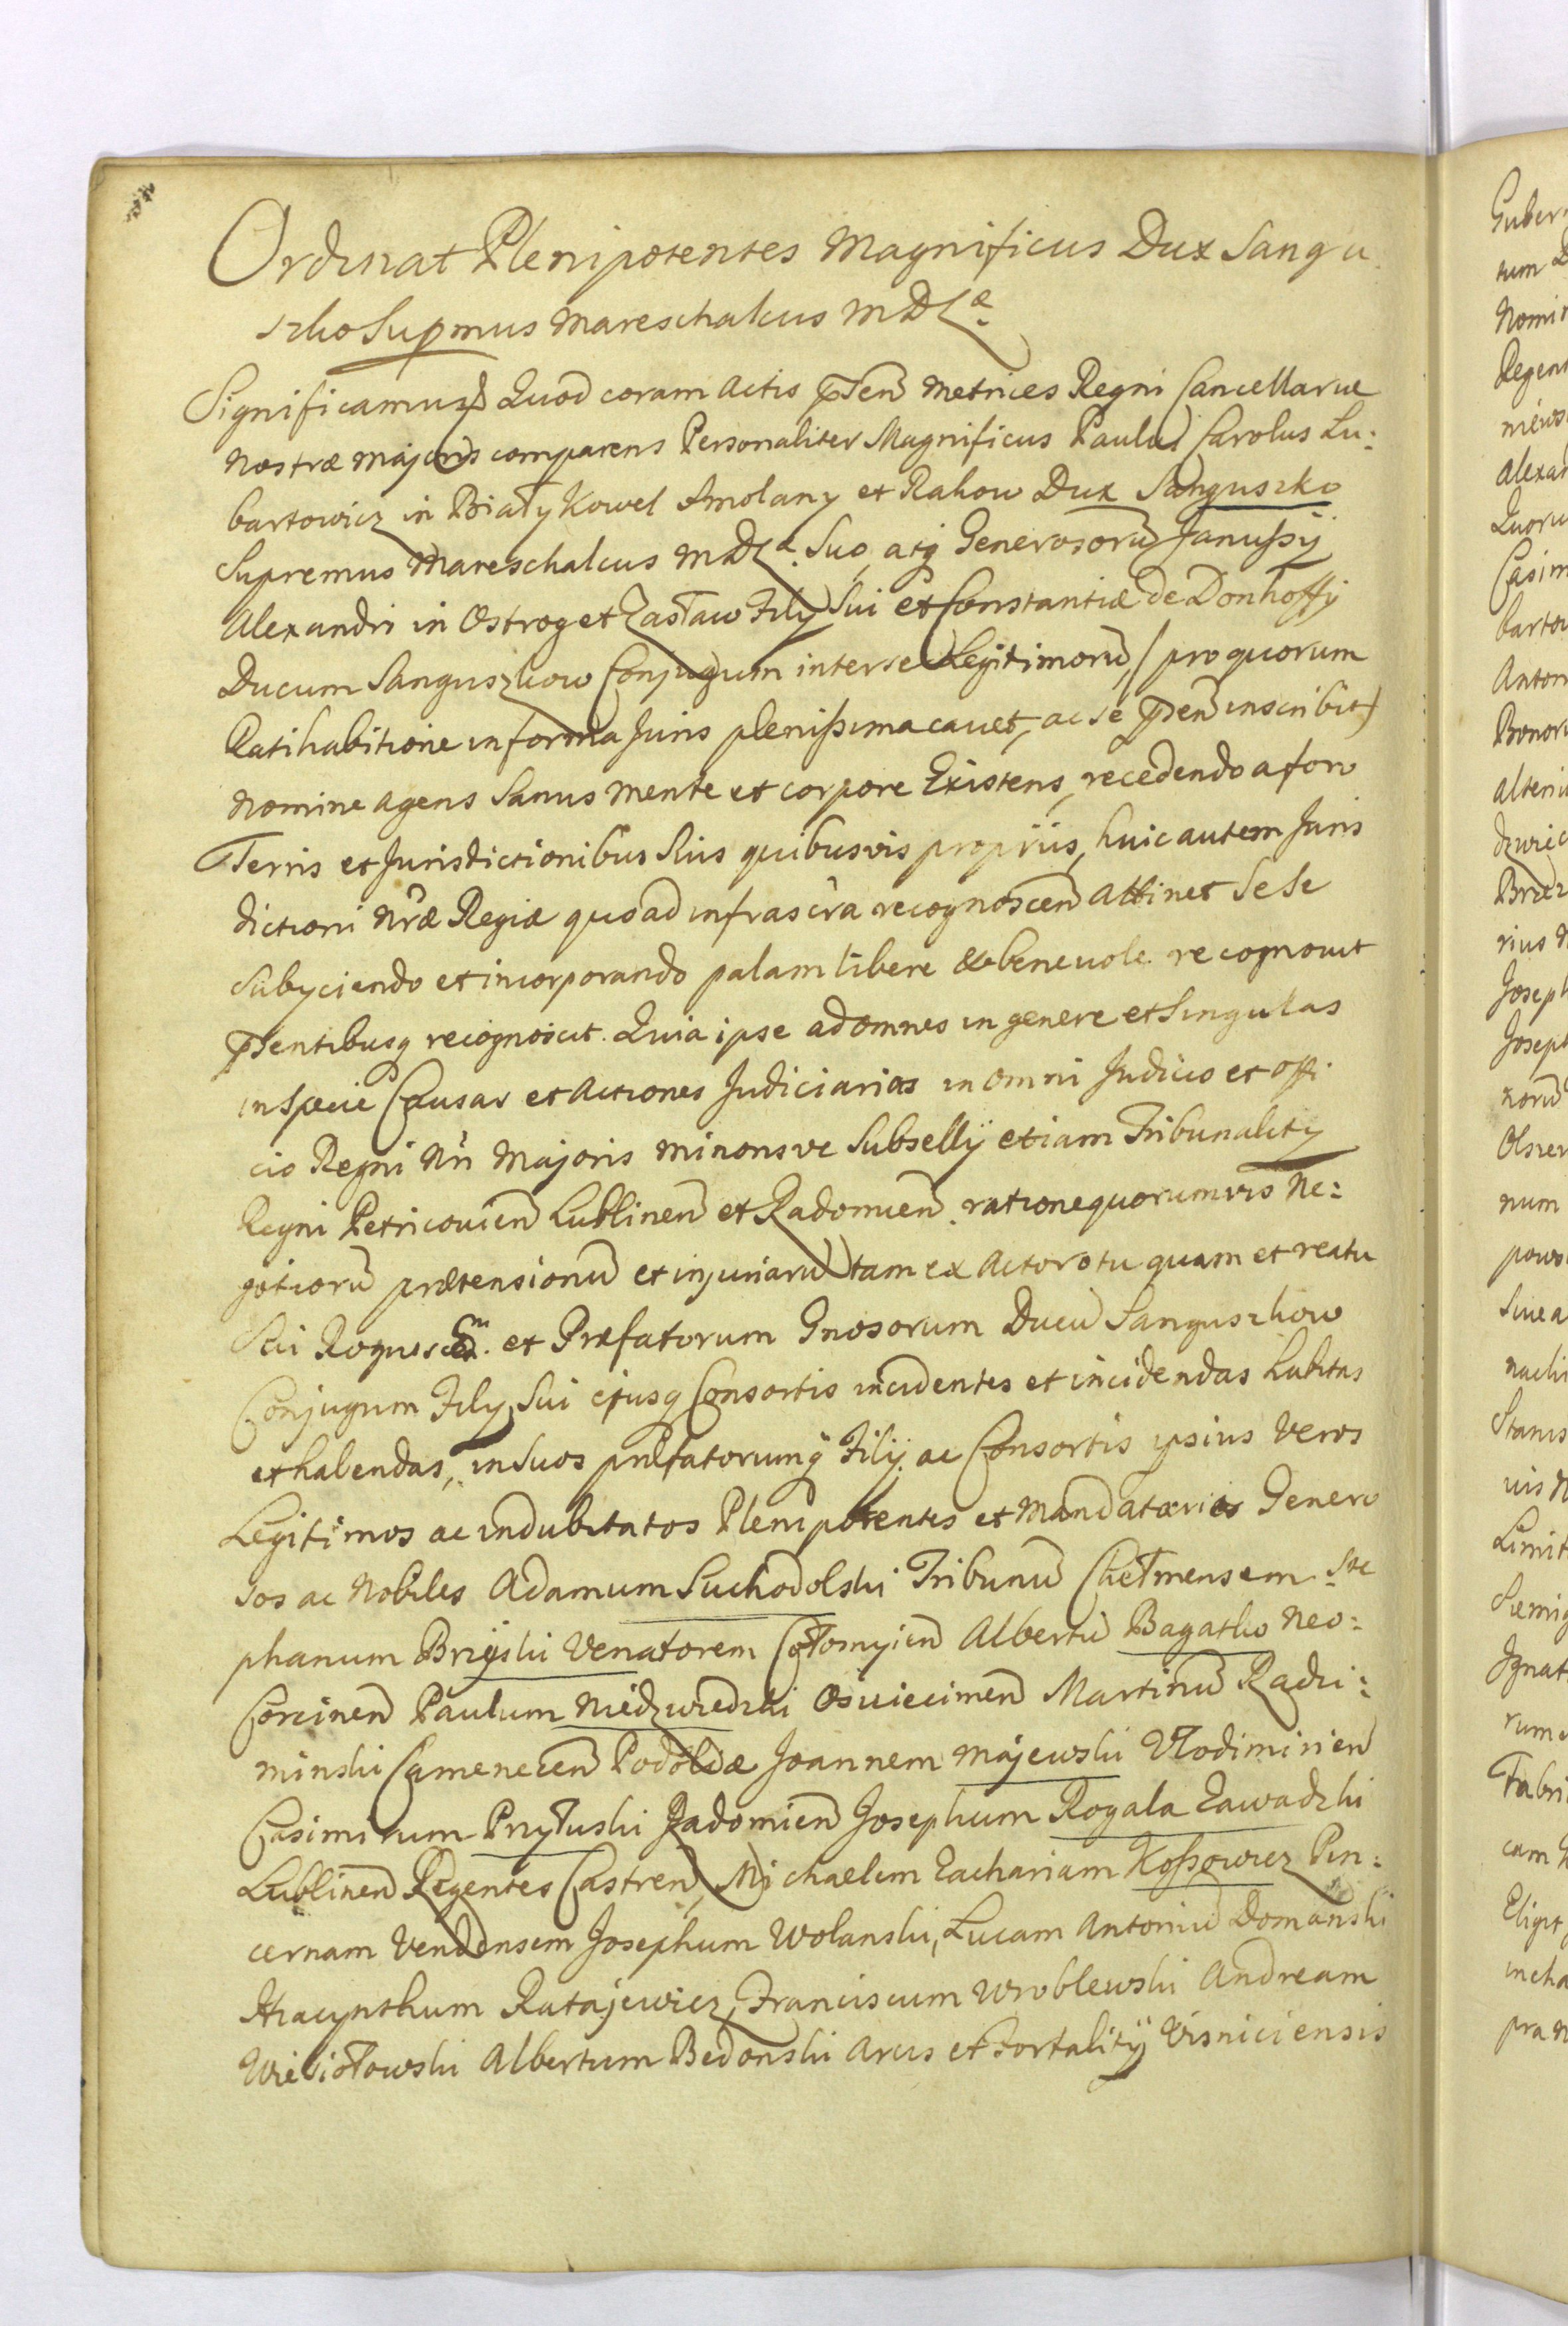 Ordinat Plenipotentes Magnificus Dux Sangu
szko Supmus Mareschalcus MDLæ
Significamus Quod coram Actis pñen Metrices Regni Cancellariæ
Nostræ majoris comparens Personaliter Magnificus Paulus Carolus Lu:
bartowicz in Biały Kowel Smolany et Rakow Dux Sanguszko
Supremus Mareschalcus MDL. Suo, atq Generosorũ Janußÿ
Alexandri in Ostrog et Zasław Filÿ Sui et Constantiæ de Donhoffÿ
Ducum Sanguszkow Conjugum inter se Legitimorũ, / pro quorum
Ratihabitione in forma Juris plenißima cauet, ac se pñen inscribit)
Nomine agens Sanus Mente et corpore Existens, recedendo a foro
Terris et Jurisdictionibus Suis quibusvis proprijs, huic autem Juris
dictioni Nræ Regiæ quoad infrascra recognoscen Attinet Sese
Subÿciendo et incorporando palam libere & benevole recognovit
pñentibusq recognoscit. Quia ipse ad omnes in genere et Singulas
in Specie Causas et Actiones Judiciarias in omni Judicio et offi
cio Regni Nri Majoris minorisve Subsellÿ etiam Tribunalitÿ
Regni Petricovien Lublinen et Radomien. ratione quorumvis Ne:
gotiorũ prætensionũ et injuriarũ tam ex Actoratu quam et reatu
Sui et Præfatorum Gnosorum Ducũ Sanguszkow
Conjugum Filÿ Sui ejusq Consortis incidentes et incidendas habitas
et habendas, in Suos præfatorumq Filÿ ac Consortis ipsius Veros
Legitimos ac indubitatos Plenipotentes et Mandatarios Genero
sos ac Nobiles Adamum Suchodolski Tribunũ Chełmensem Ste
phanum Brijski Venatorem Cołomyien Albertũ Bagatko Neo:
Corcinen Paulum Niedzwiedzki Osviecimen Martinũ Radzi:
minski Camenecen Podoliæ Joannem Majewski Włodimirien
Casimirum Przyłuski Radomien Josephum Rogala Zawadzki
Lublinen Regentes Castren, Michaelem Zachariam Koßowicz Pin:
cernam Vendensem Josephum Wolanski, Lucam Antoniũ Domanski
Hiacynthum Ratajewicz, Franciscum Wroblewski Andream
Wiesiołowski Albertum Bedonski Arcis et Fortalitÿ Visniciensis
Guber
tum
Nomi
Regen
Alexan
Quoru
Casim
barto
Anton
Bonor
alteri
rius
Joseph
Joseph
num
Sive a
Stanis
Limit
Ignat
rum
Fabri
cam
Eligit